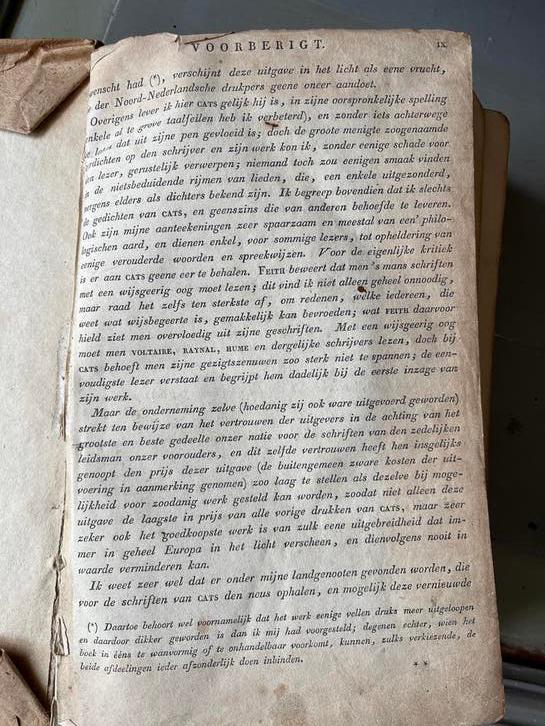 VOORBERIGT. IX
wenscht had (*), verschijnt deze uitgave in het licht als eene vrucht,
der Noord-Nederlandsche drukpers geene oneer aandoet.
Overigens lever ik hier CATS gelijk hij is, in zijne oorspronkelijke spelling
enkele al te grove taalfeilen heb ik verbeterd), en zonder iets achterwege
te laten dat uit zijne pen gevloeid is; doch de groote menigte zoogenaamde
gedichten op den schrijver en zijn werk kon ik, zonder eenige schade voor
den lezer, gerustelijk verwerpen; niemand toch zou eenigen smaak vinden
in de nietsbeduidende rijmen van lieden, die, een enkele uitgezonderd,
nergens elders als dichters bekend zijn. Ik begreep bovendien dat ik slechts
de gedichten van CATS, en geenszins die van anderen behoefde te leveren.
Ook zijn mijne aanteekeningen zeer spaarzaam en meestal van een' philo-
logischen aard, en dienen enkel, voor sommige lezers, tot opheldering van
eenige verouderde woorden en spreekwijzen. Voor de eigenlijke kritiek
is er aan CATS geene eer te behalen. FEITH beweert dat men 's mans schriften
met een wijsgeerig oog moet lezen; dit vind ik niet alleen geheel onnoodig,
maar raad het zelfs ten sterkste af, om redenen, welke iedereen, die
weet wat wijsbegeerte is, gemakkelijk kan bevroeden; wat FEITH daarvoor
hield ziet men overvloedig uit zijne geschriften. Met een wijsgeerig oog
moet men VOLTAIRE, RAYNAL, HUME en dergelijke schrijvers lezen, doch bij
CATS behoeft men zijne gezigtszenuwen zoo sterk niet te spannen; de een-
voudigste lezer verstaat en begrijpt hem dadelijk bij de eerste inzage van
zijn werk.
Maar de onderneming zelve (hoedanig zij ook ware uitgevoerd geworden)
strekt ten bewijze van het vertrouwen der uitgevers in de achting van het
grootste en beste gedeelte onzer natie voor de schriften van den zedelijken
leidsman onzer voorouders, en dit zelfde vertrouwen heeft hen insgelijks
genoopt den prijs dezer uitgave (de buitengemeen zware kosten der uit-
voering in aanmerking genomen) zoo laag te stellen als dezelve bij moge-
lijkheid voor zoodanig werk gesteld kan worden, zoodat niet alleen deze
uitgave de laagste in prijs van alle vorige drukken van CATS, maar zeer
zeker ook het goedkoopste werk is van zulk eene uitgebreidheid dat im-
mer in geheel Europa in het licht verscheen, en dienvolgens nooit in
waarde verminderen kan.
Ik weet zeer wel dat er onder mijne landgenooten gevonden worden, die
voor de schriften van CATS den neus ophalen, en mogelijk deze vernieuwde
(*) Daartoe behoort wel voornamelijk dat het werk eenige vellen druks meer uitgeloopen
en daardoor dikker geworden is dan ik mij had voorgesteld; degenen echter, wien het
boek in ééns te wanvormig of te onhandelbaar voorkomt, kunnen, zulks verkiezende, de
beide afdeelingen ieder afzonderlijk doen inbinden.
**